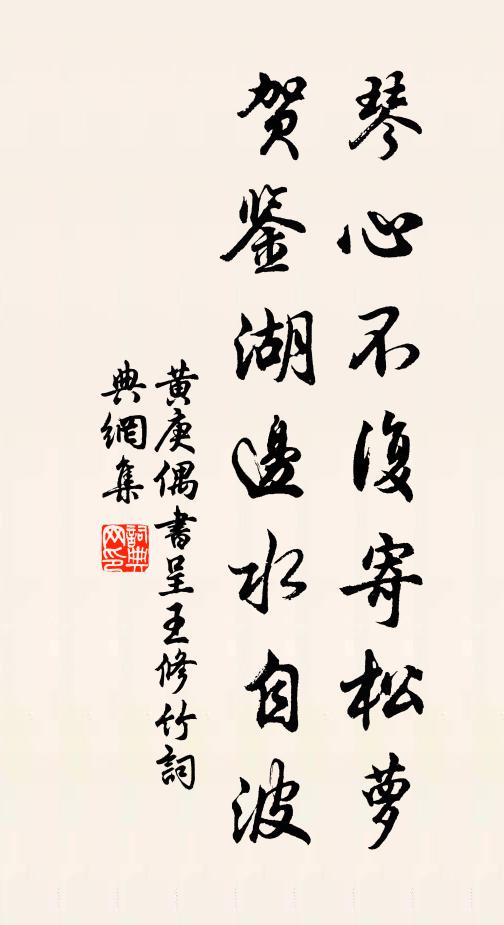 琴心不復寄松萝
贺鉴湖邊水自波
黃庚偶書呈王修竹詞
典網集
詞典网印